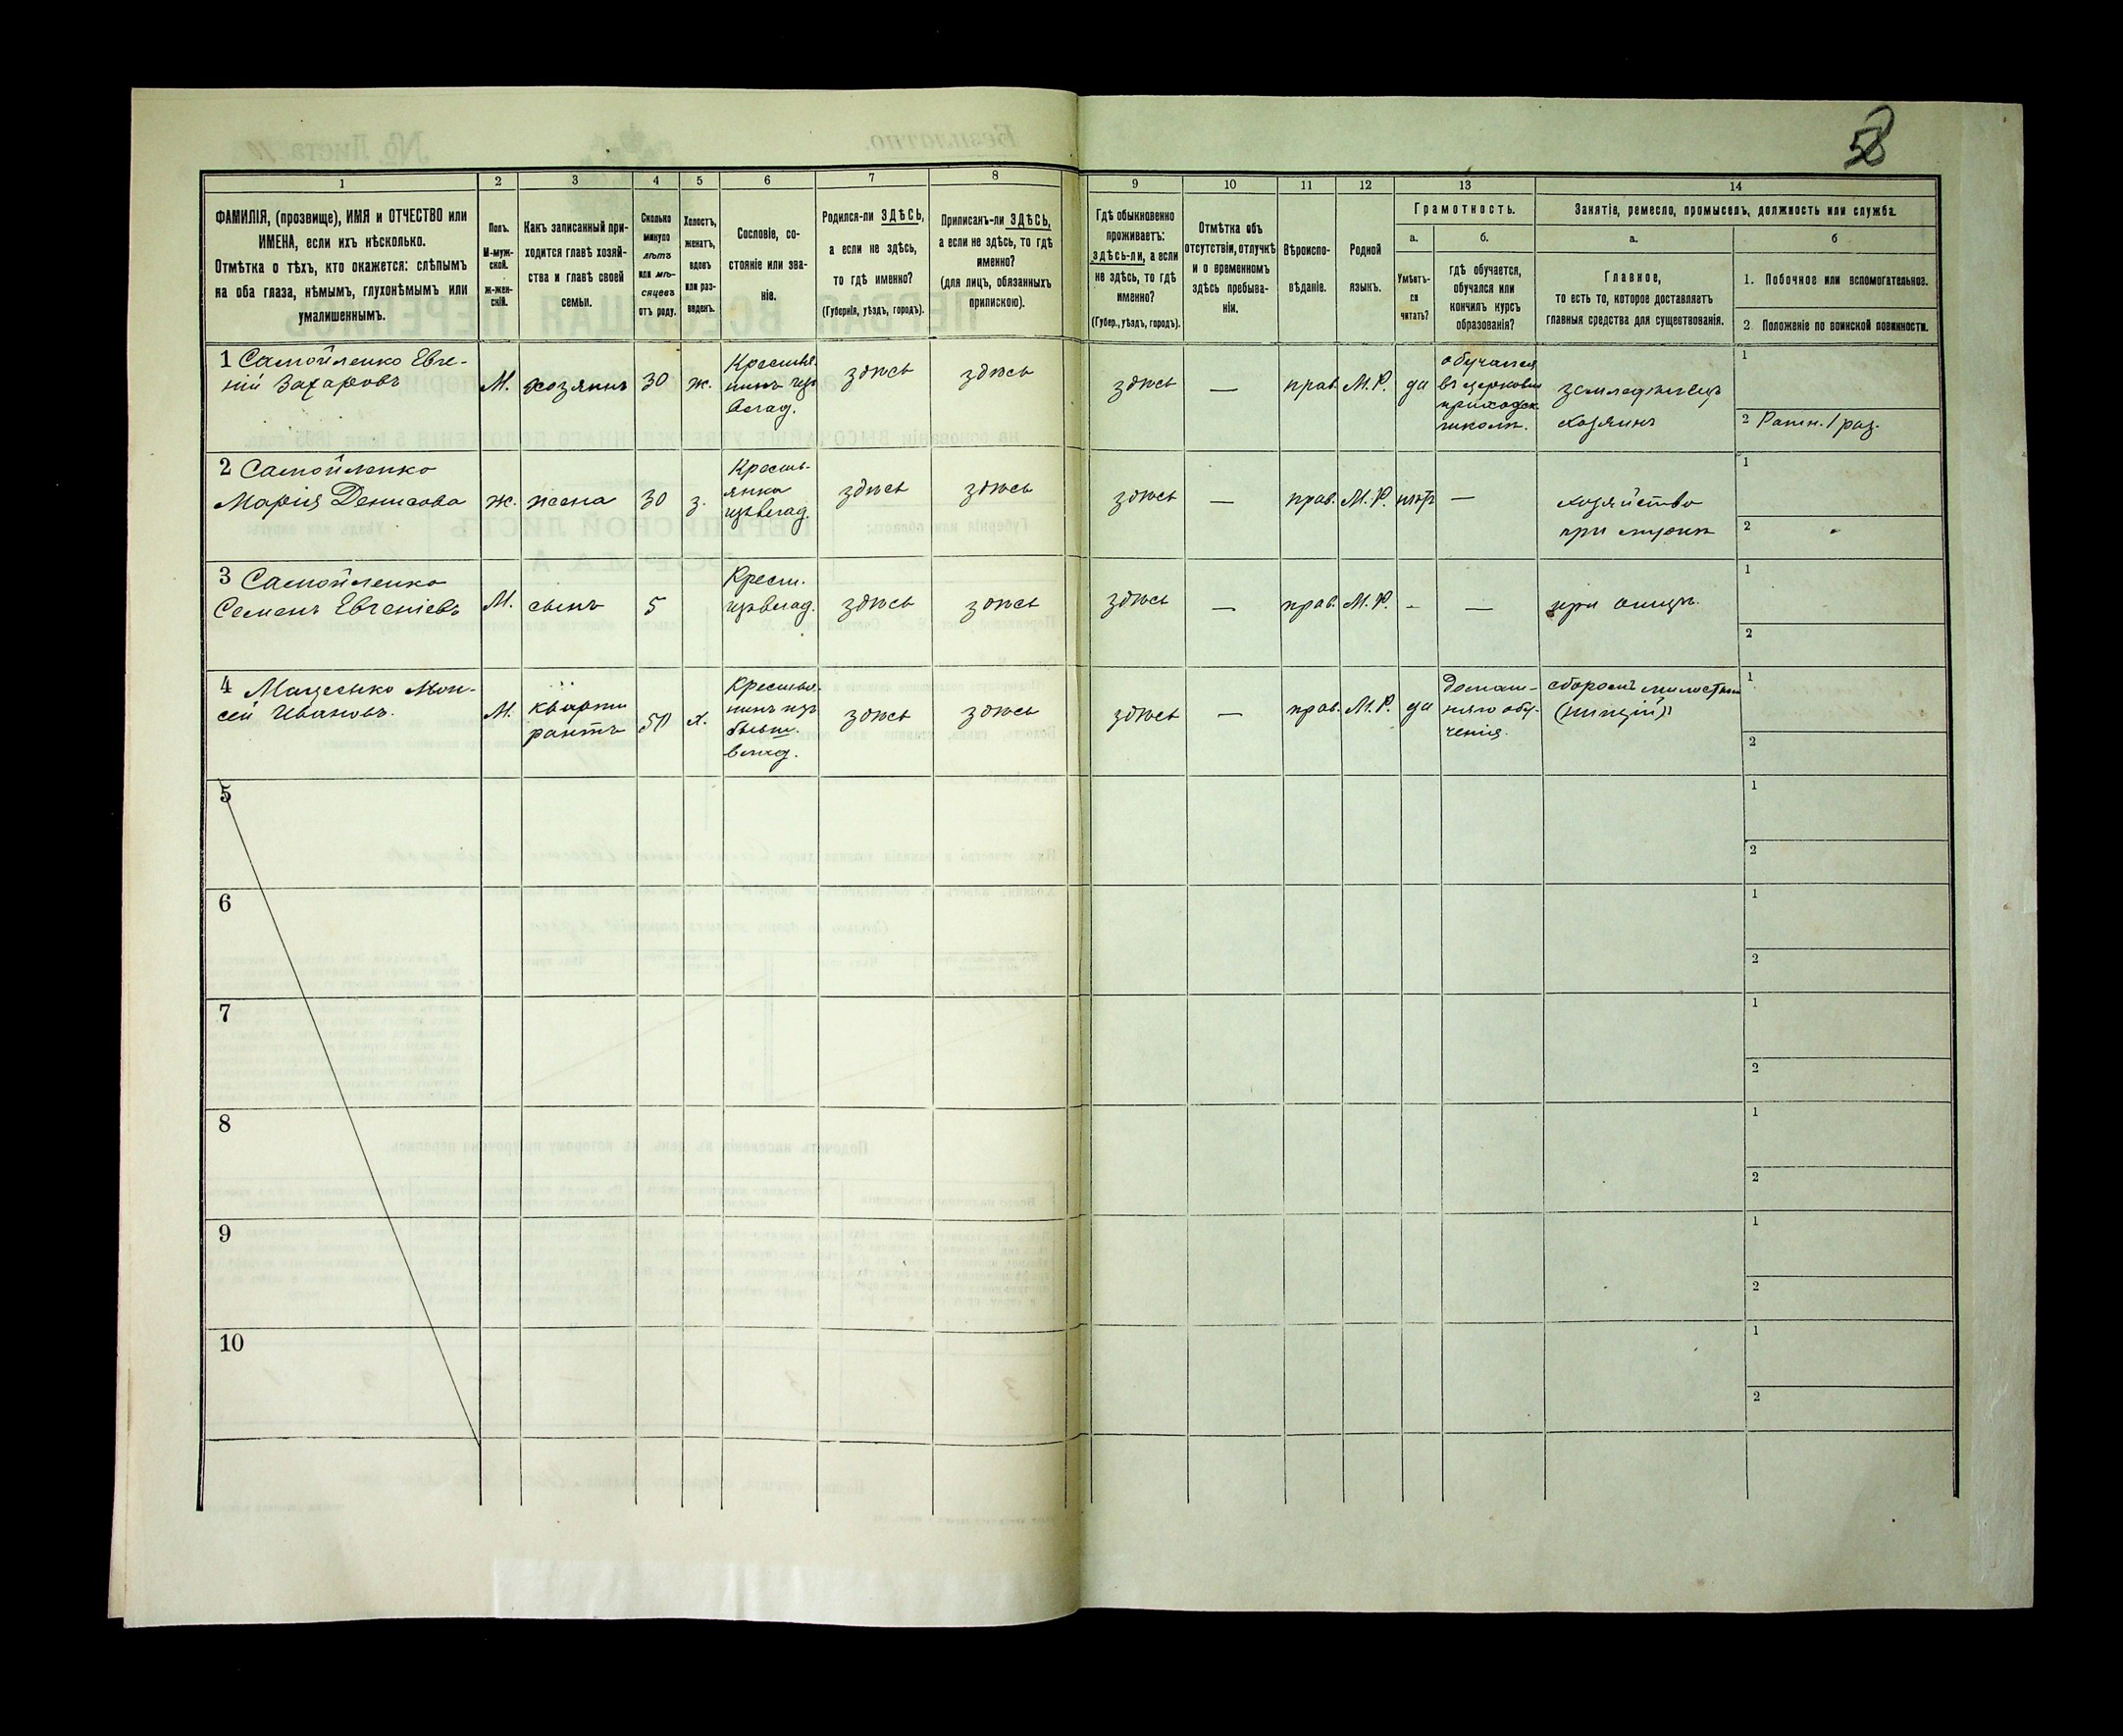 58
1 2 3 4 5 6 7 8 9 10 11 12 13 14
ФАМИЛІЯ, (прозвище), ИМЯ и ОТЧЕСТВО или
ИМЕНА, если ихъ нѣсколько.
Отмѣтка о тѣхъ, кто окажется: слѣпымъ
на оба глаза, нѣмымъ, глухонѣмымъ или
умалишеннымъ.
Полъ.
М-муж-
ской.
ж-жен-
скій.
Какъ записанный при-
ходится главѣ хозяй-
ства и главѣ своей
семьи.
Сколько
минуло
лѣтъ
или мѣ-
сяцевъ
отъ роду.
Холостъ,
женатъ,
вдовъ
или раз-
веденъ.
Сословіе, со-
стояніе или зва-
ніе.
Родился-ли ЗДѢСЬ,
а если не здѣсь,
то гдѣ именно?
(Губернія, уѣздъ, городъ).
Приписанъ-ли ЗДѢСЬ,
а если не здѣсь, то гдѣ
именно?
(для лицъ, обязанныхъ
припискою).
Гдѣ обыкновенно
проживаетъ:
здѣсь-ли, а если
не здѣсь, то гдѣ
именно?
(Губер., уѣздъ, городъ).
Отмѣтка объ
отсутствіи, отлучкѣ
и о временномъ
здѣсь пребыва-
ніи.
Вѣроиспо-
вѣданіе.
Родной
языкъ.
Грамотность.
а.
Умѣетъ-
ли
читать?
б.
гдѣ обучается,
обучался или
кончилъ курсъ
образованія?
Занятіе, ремесло, промыселъ, должность или служба.
а.
Главное,
то есть то, которое доставляетъ
главныя средства для существованія.
б
1. Побочное или вспомогательное.
2 Положеніе по воинской повинности.
1 Самойленко Евге-
ній Захаровъ
М.
хозяинъ
30
ж.
Крестья-
нинъ изъ
влад.
здѣсь
здѣсь
здѣсь
—
прав.
М.Р.
да
обучался
въ церковн
приходск
школѣ.
земледѣлецъ
хозяинъ
1
2 Ратн. 1 раз.
2 Самойленко
Марія Денисова
ж.
жена
30
з.
Кресть-
янка
изъ влад.
здѣсь
здѣсь
здѣсь
—
прав.
М.Р.
нѣтъ
—
хозяйство
при мужѣ
1
2
3 Самойленко
Семенъ Евгеніевъ
М.
сынъ
5
Крест.
изъ влад.
здѣсь
здѣсь
здѣсь
—
прав.
М.Р.
-
—
при отцѣ.
1
2
4 Мацесько Мои-
сей Ивановъ.
М.
кварти
рантъ
50
х.
Крестья-
нинъ изъ
бывш.
влад.
здѣсь
здѣсь
здѣсь
—
прав.
М.Р.
да
домаш-
няго обу-
ченія.
сборомъ милостын
(нищій)
1
2
5
1
2
6
1
2
7
1
2
8
1
2
9
1
2
10
1
2